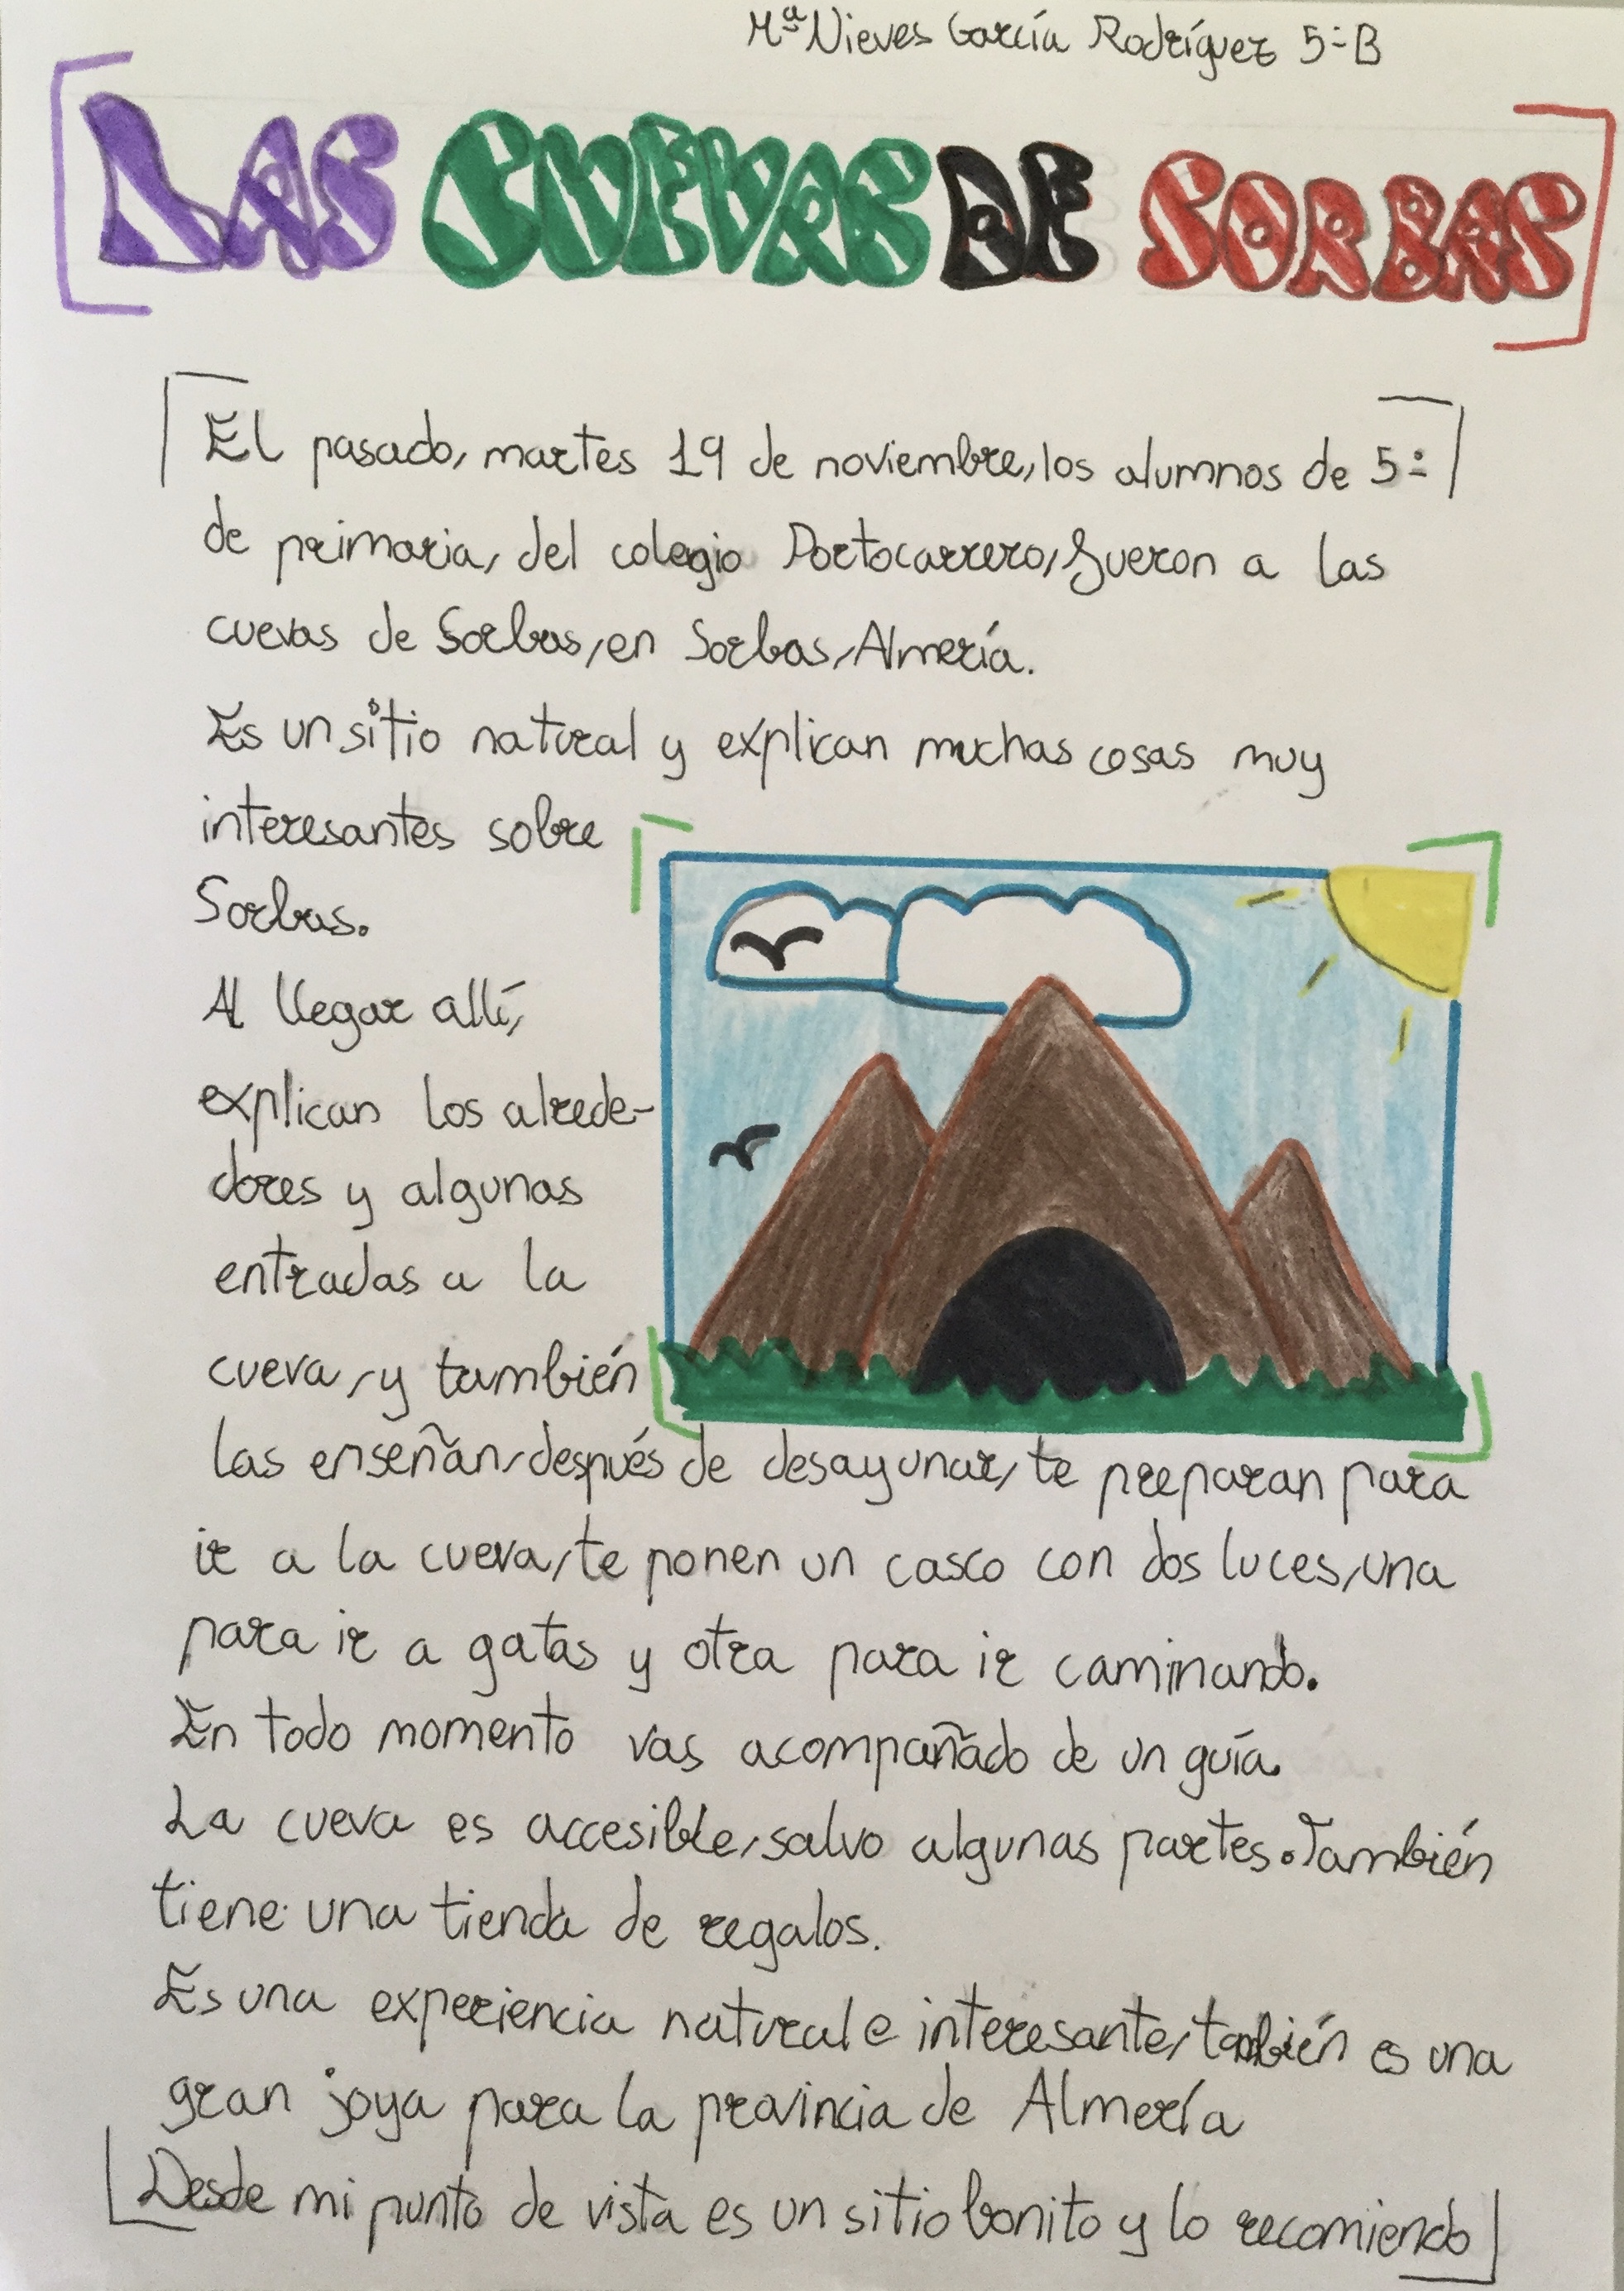 Mª Nieves García Rodríguez 5º B
LAS CUEVAS DE SORBAS
El pasado, martes 19 de noviembre, los alumnos de 5º
de primaria, del colegio Portocarrero, fueron a las
cuevas de Sorbas, en Sorbas, Almería.
Es un sitio natural y explican muchas cosas muy
interesantes sobre
Sorbas.
Al llegar allí,
explican los alrede-
dores y algunas
entradas a la
cueva, y también
las enseñan, después de desayunar, te preparan para
ir a la cueva, te ponen un casco con dos luces, una
para ir a gatas y otra para ir caminando.
En todo momento vas acompañado de un guía.
La cueva es accesible, salvo algunas partes. También
tiene una tienda de regalos.
Es una experiencia natural e interesante, también es una
gran joya para la provincia de Almería
Desde mi punto de vista es un sitio bonito y lo recomiendo